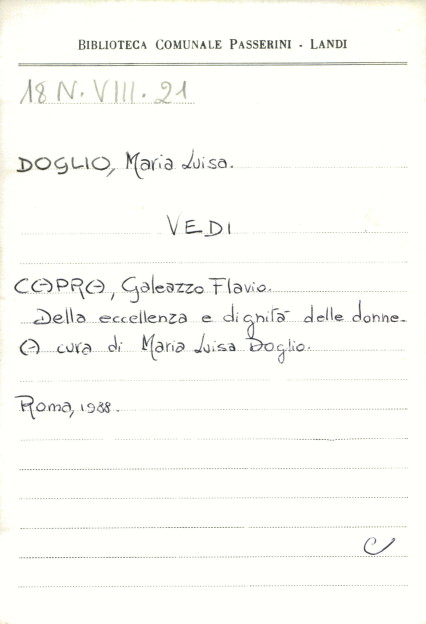 BIBLIOTECA COMUNALE PASSERINI - LANDI
18 N. VIII. 21
DOGLIO, Maria Luisa.
VEDI
CAPRA, Galeazzo Flavio.
Della eccellenza e dignità delle donne.
A cura di Maria Luisa Doglio.
Roma, 1988.
C